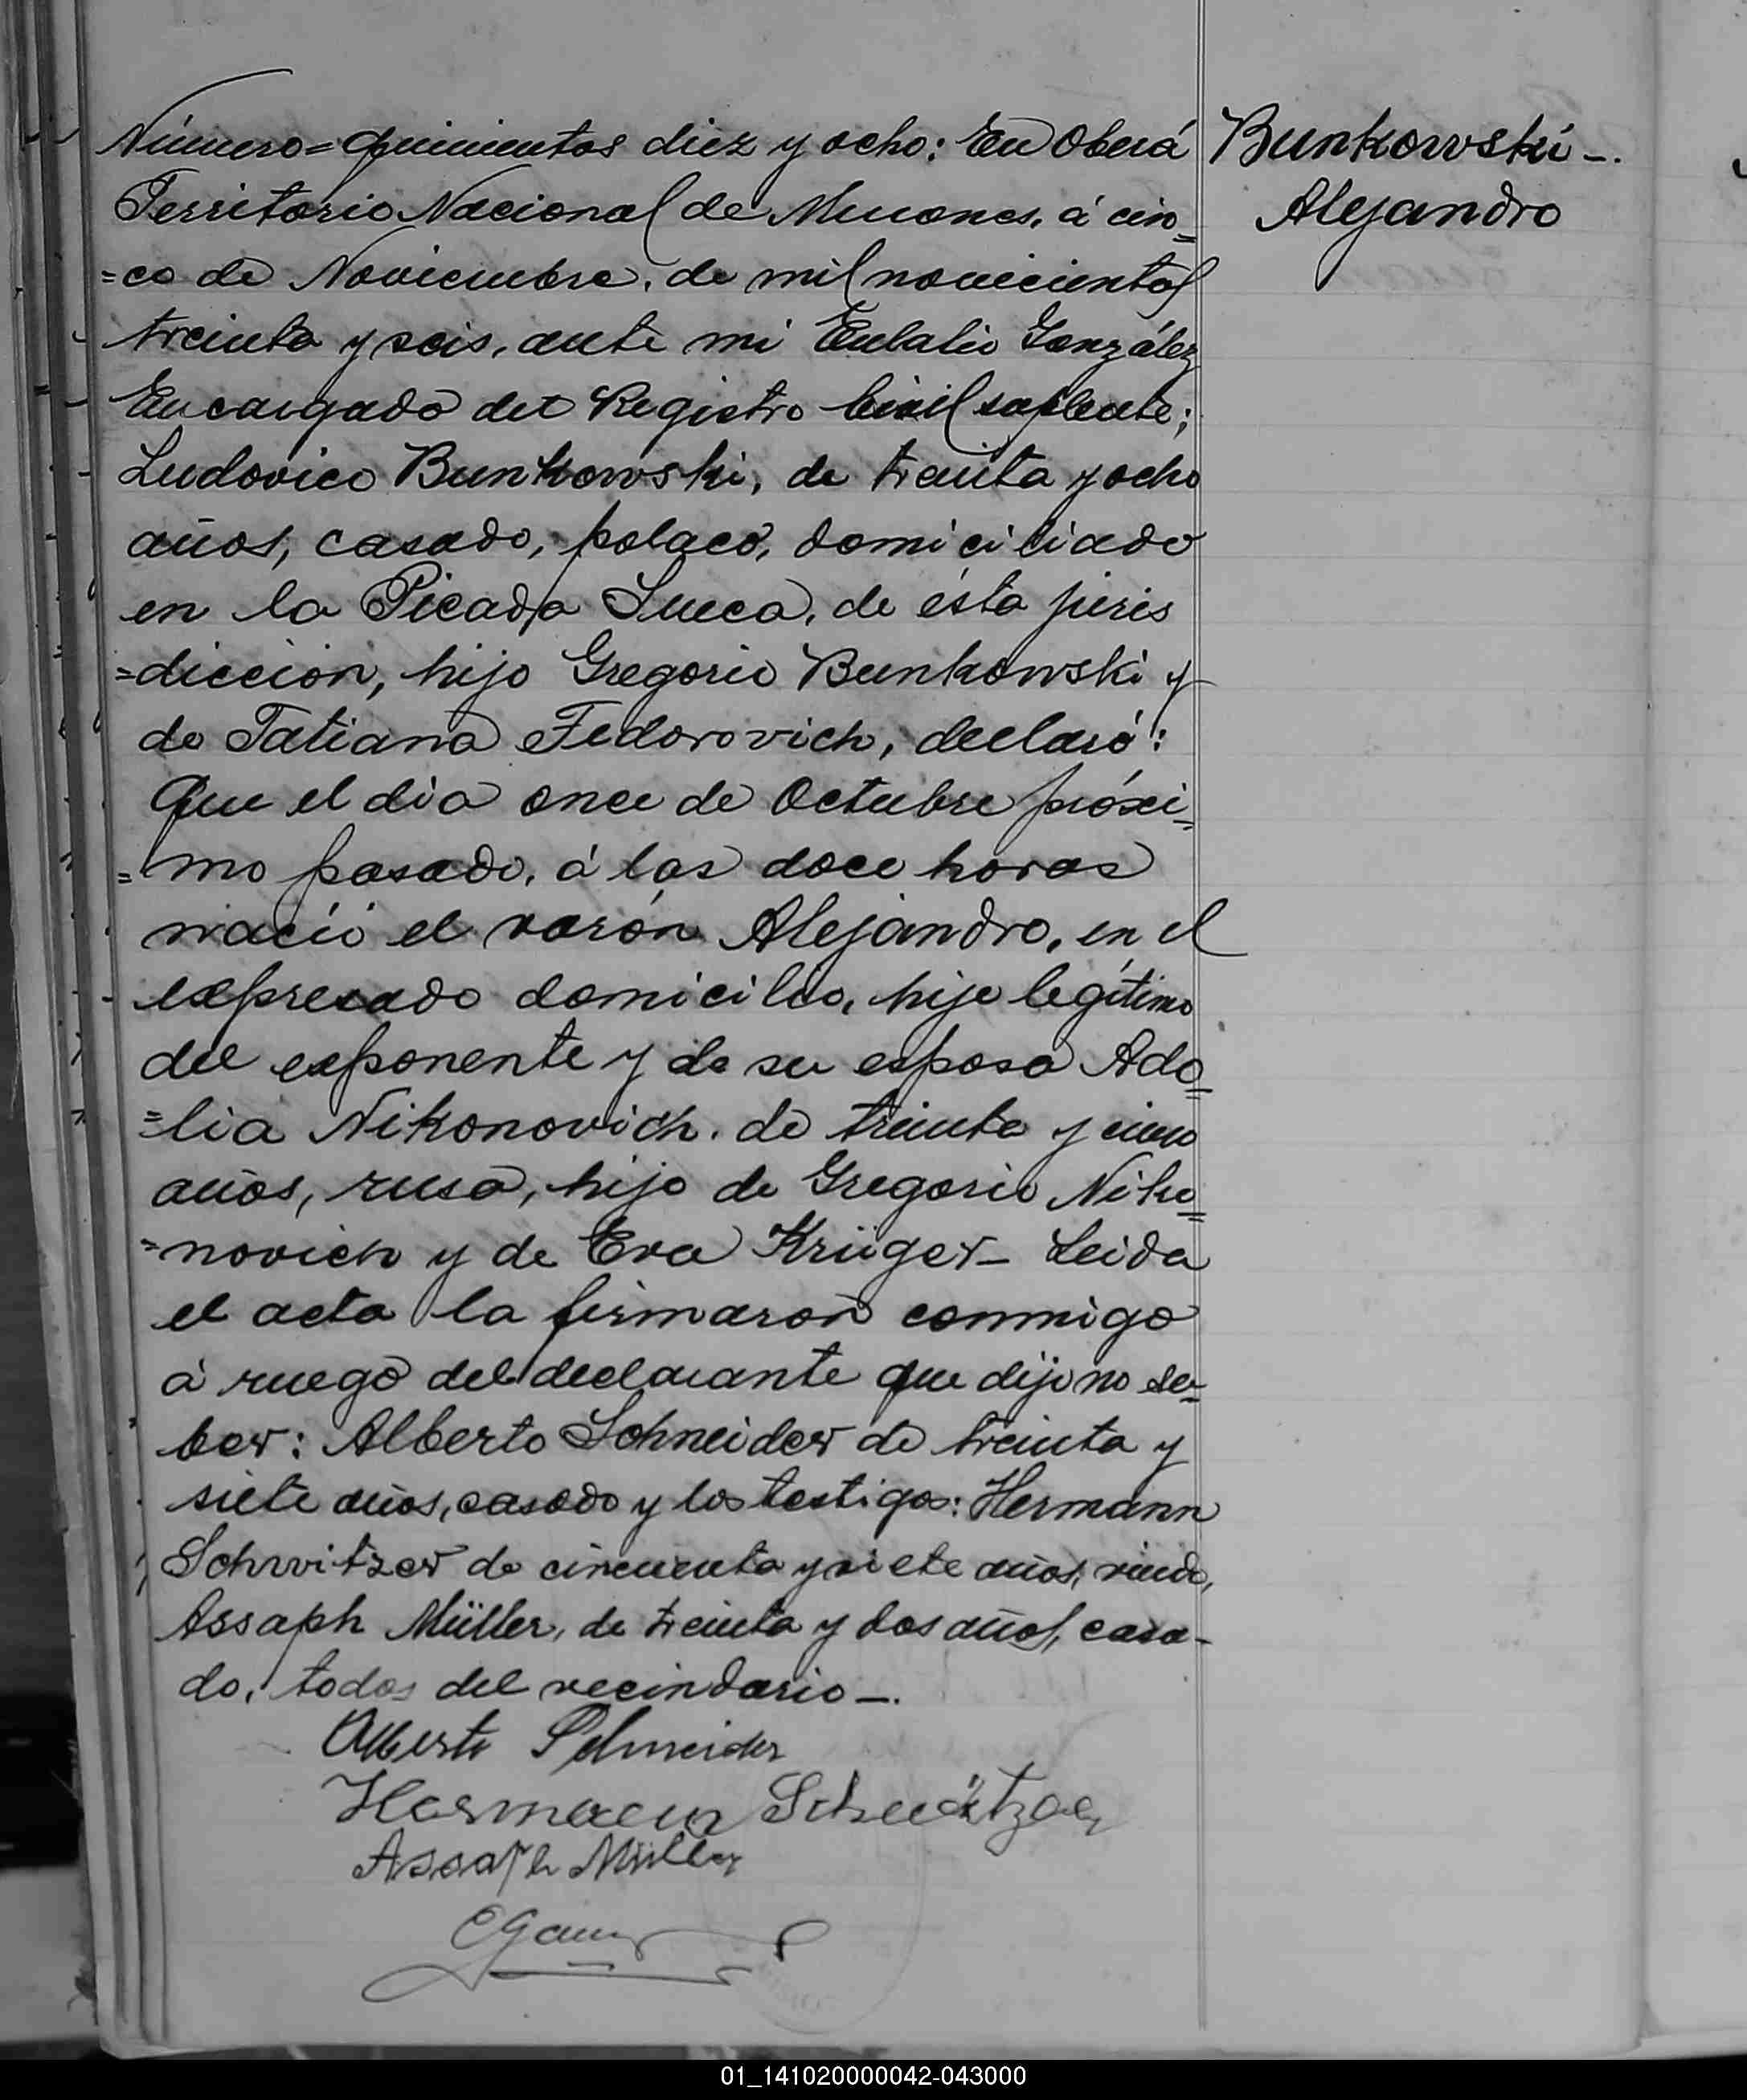 Número = quinientos diez y ocho: En Oberá
Territorio Nacional de Misiones, á cin=
=co de Noviembre, de mil novecientos
treinta y seis, ante mi Eulalio González
Encargado del Registro Civil suplente;
Ludovico Bunkowski, de treinta y ocho
años, casado, polaco, domiciliado
en la Picada Sueca, de ésta juris
=diccion, hijo Gregorio Bunkowski y
de Tatiana Fedorovich, declaró:
Que el dia once de Octubre próxi=
=mo pasado, á las doce horas
nació el varón Alejandro, en el
expresado domicilio, hijo legítimo
del exponente y de su esposa Ado=
=lia Nikonovich, de treinta y cinco
años, rusa, hija de Gregorio Niko=
=novich y de Eva Krüger_ Leida
el acta la firmaron conmigo
á ruego del declarante que dijo no sa=
ber: Alberto Schneider de treinta y
siete años, casado y los testigos: Hermann
Schwitzer de cincuenta y siete años, viudo,
Assaph Müller, de treinta y dos años, casa-
do, todos del vecindario_.
Alberto Schneider
Hermann
Assaph Müller
Bunkowski_.
Alejandro
01_141020000042-043000